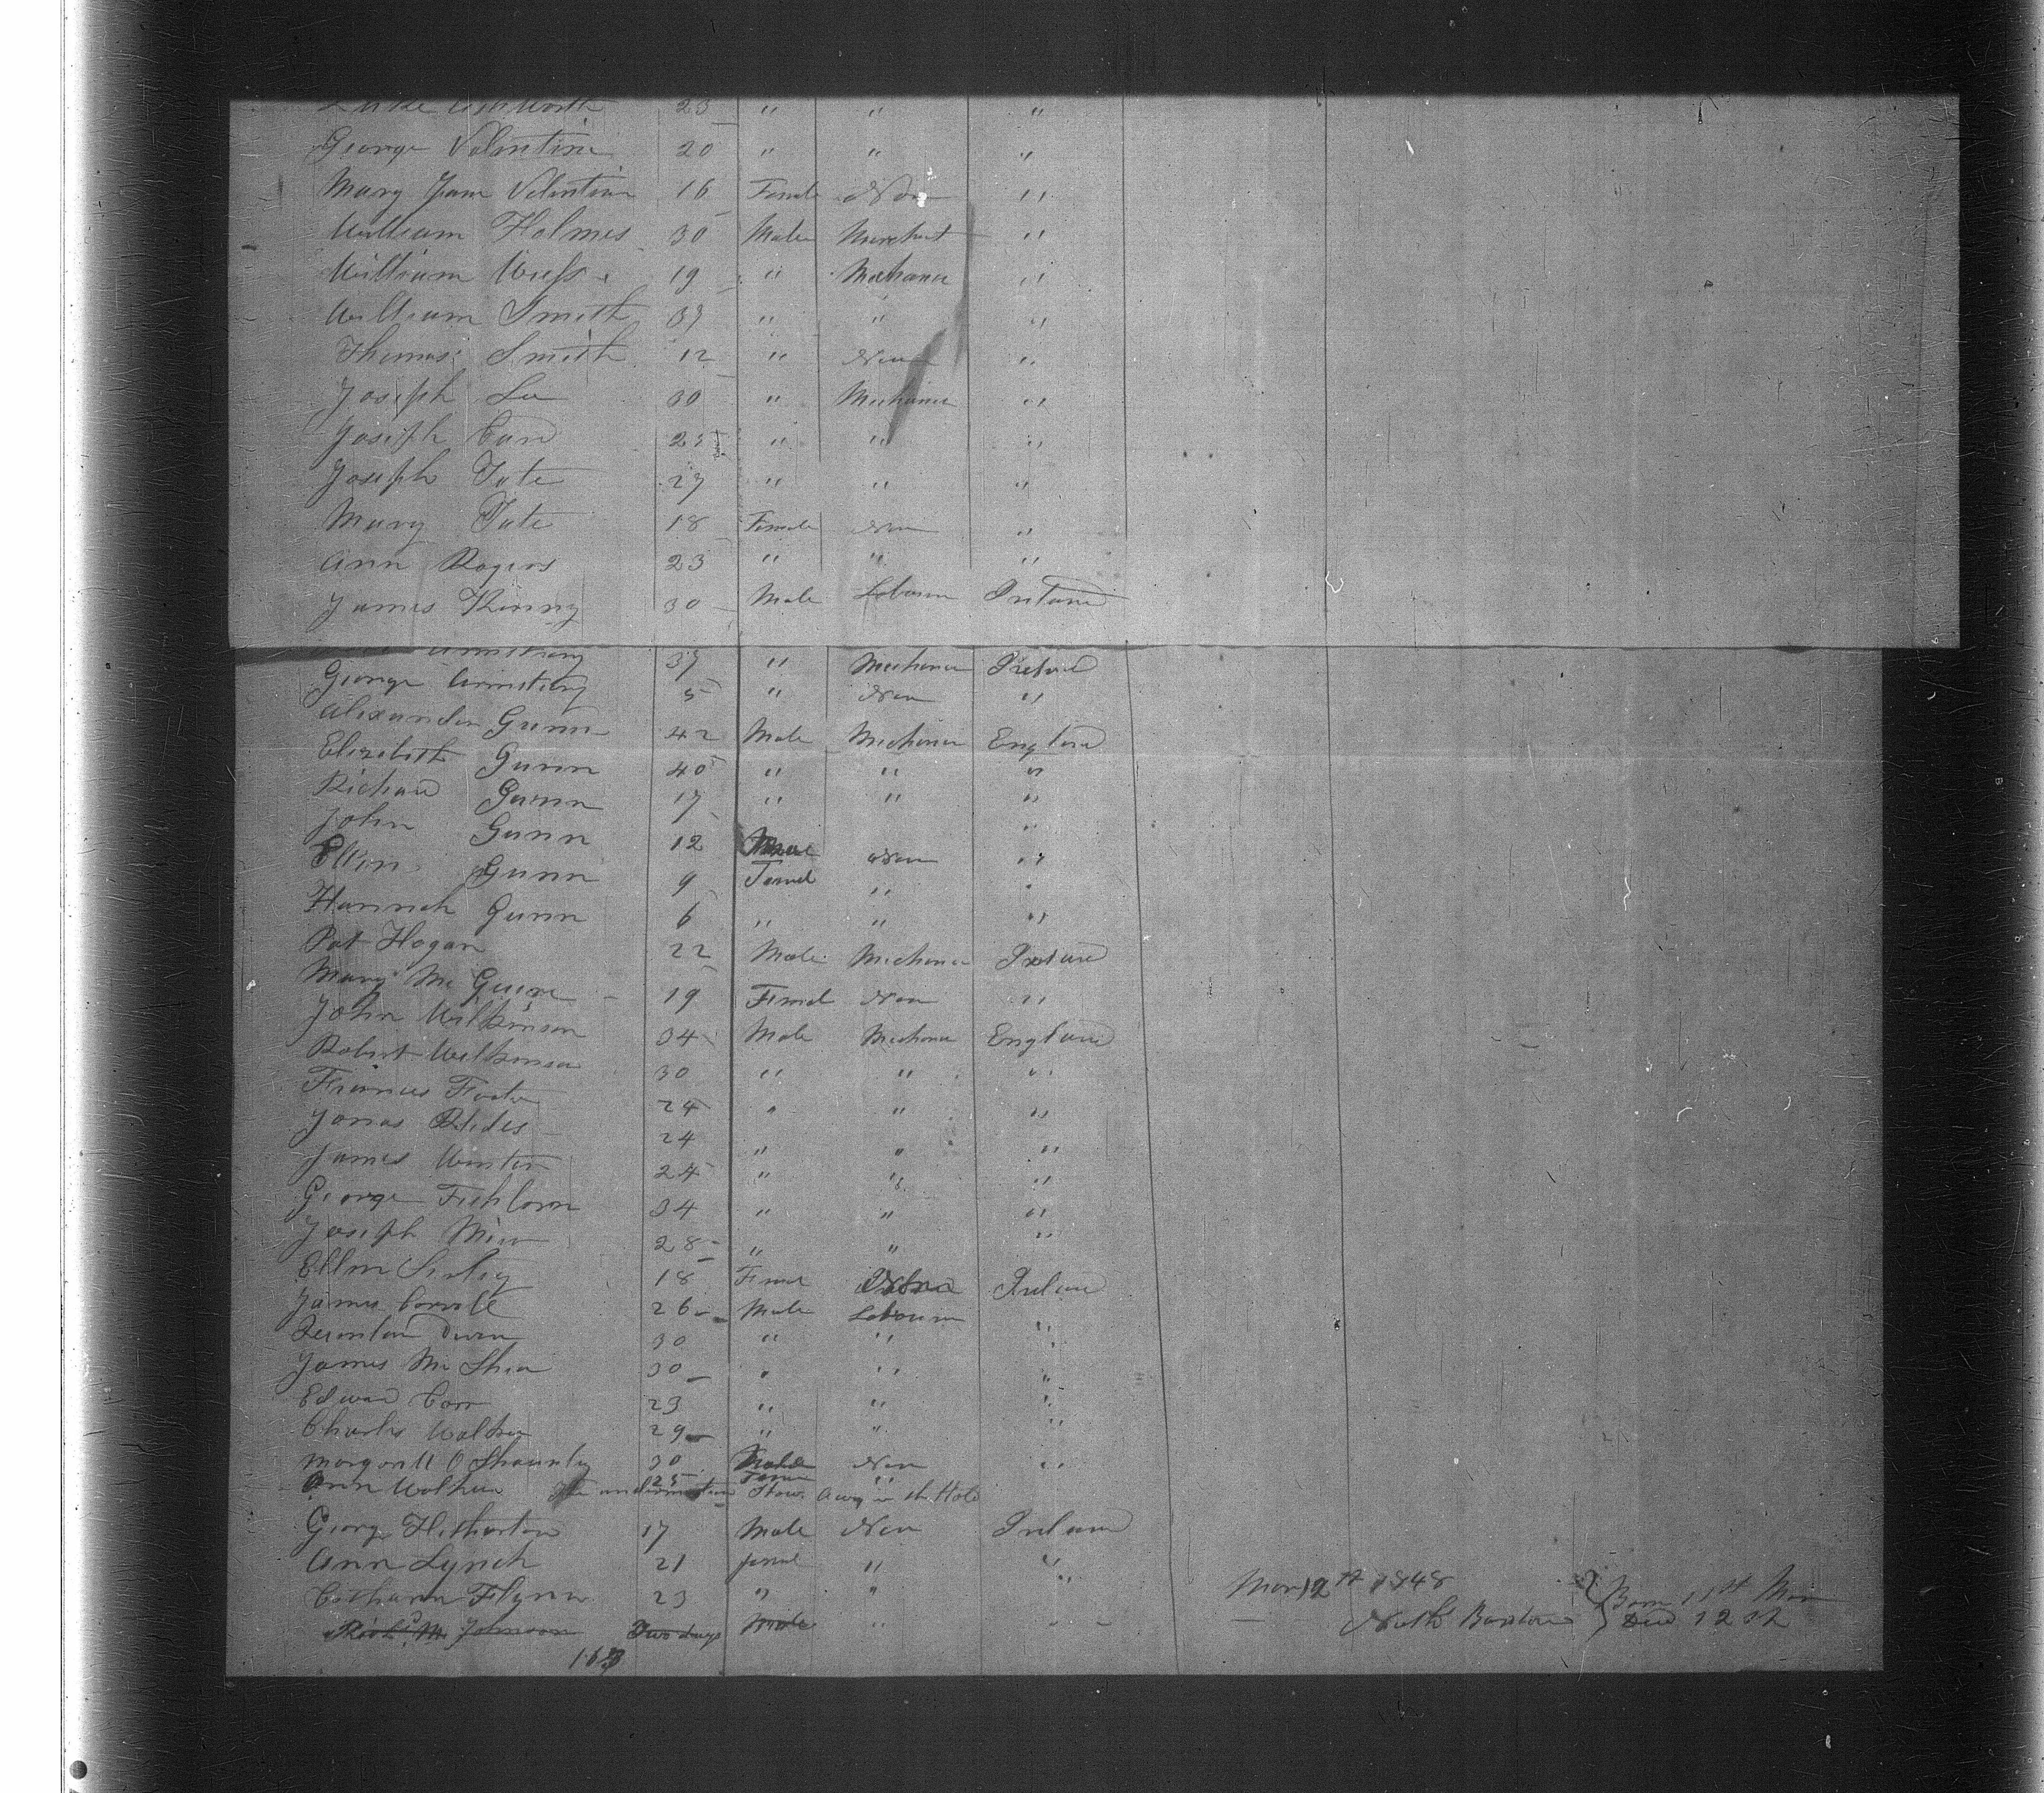 23 " " "
George Valentine 20 " " "
Mary Jane Valentine 16 Female Non "
William Holmes 30 Male Merchant "
William 19 " Mechanic "
William Smith 33 " " "
Thomas Smith 12 " Non "
Joseph Lee 30 " Mechanic "
Joseph 25 " " "
Joseph Tate 27 " " "
Mary Tate 18 Female Non "
Ann Rogers 23 " " "
James Kinny 30 Male Labourer Ireland
Armstrong 37 " Mechanic Ireland
George Armstrong 5 " Non "
Alexander Gunn 42 Male Mechanic England
Elizabeth Gunn 40 " " "
Richard Gunn 17 " " "
John Gunn 12 Male Non "
Ellen Gunn 9 Femal " "
Hannah Gunn 6 " " "
Pat Hogan 22 Male Mechanic Ireland
Mary Mc Guire 19 Femal Non "
John Wilkinson 34 Male Mechanic England
Robert Wilkinson 30 " " "
Frances Foster 24 " " "
Jonas 24 " " "
James Winter 24 " " "
George 34 " " "
Joseph 28 " " "
Ellen 18 Femal Non Ireland
James 26 Male Labourer "
30 " " "
James Mc Shea 30 " " "
Edward Carr 23 " " "
Charles Walker 29 " " "
Margarett O Shaunley 30 Male Non "
Ann 25 Femal "
The Stow Away in the Hold
George Hetherton 17 Male Non Ireland
Ann Lynch 21 femal " "
Catharn Flynn 23 " " "
Richd. Mc Johnson Two days Male " " Mar 12th 1848 North Born 11th Mar
Died 12th
163